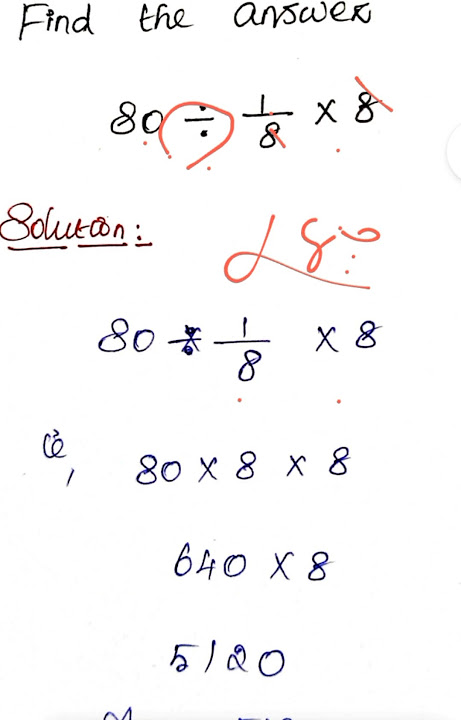 Find the answer
80 ÷ 1/8 × 8
Solution:
80 ÷ 1/8 × 8
ie, 80 × 8 × 8
640 × 8
5120